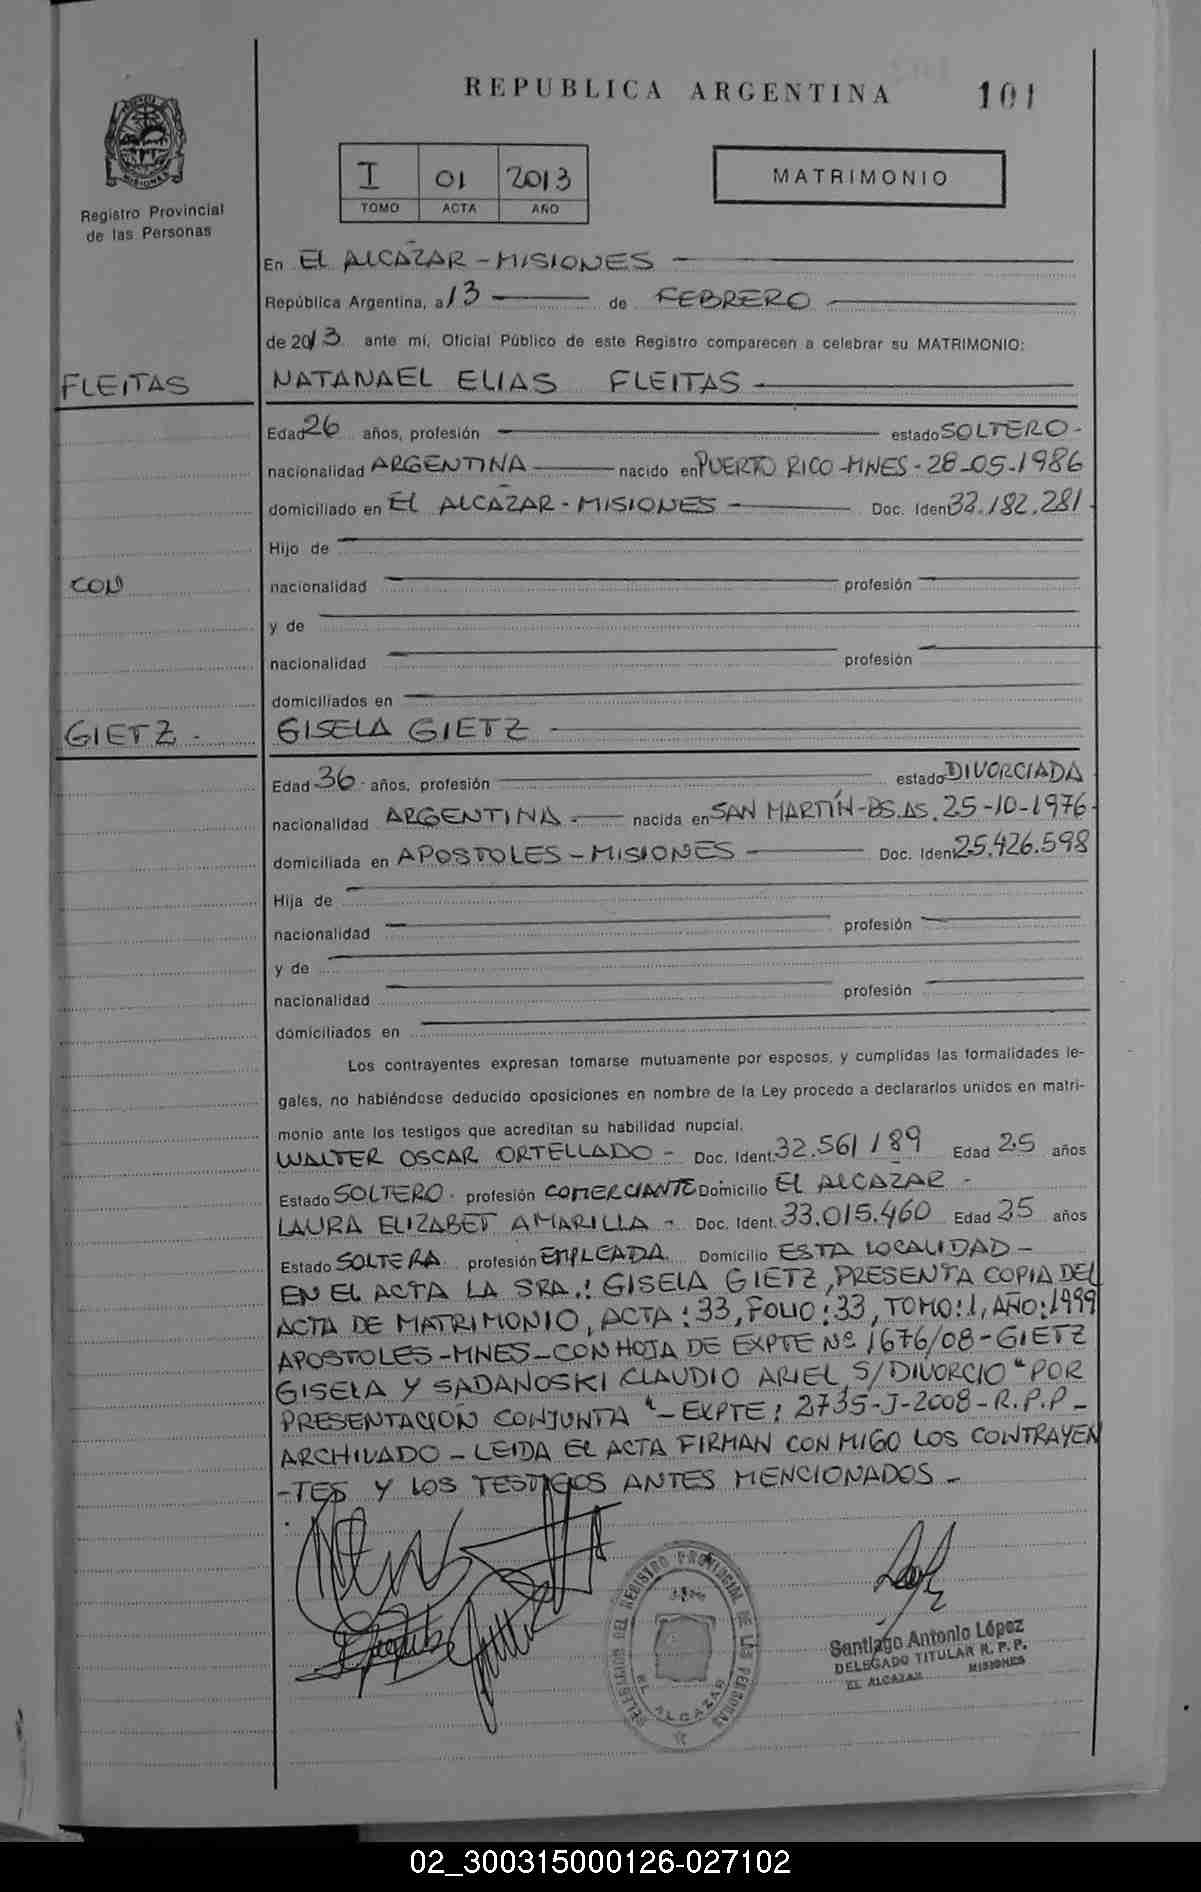 REPUBLICA ARGENTINA 101
MISIONES
Registro Provincial
de las Personas
I 01 2013
TOMO ACTA AÑO
MATRIMONIO
En EL ALCAZAR - MISIONES
República Argentina, a 13 de FEBRERO
de 2013 ante mí, Oficial Público de este Registro comparecen a celebrar su MATRIMONIO:
FLEITAS NATANAEL ELIAS FLEITAS
Edad 26 años, profesión estado SOLTERO-
nacionalidad ARGENTINA nacido en PUERTO RICO-MNES-28-05-1986
domiciliado en EL ALCAZAR-MISIONES Doc. Iden 32.182.281
Hijo de
CON nacionalidad profesión
y de
nacionalidad profesión
domiciliados en
GIETZ- GISELA GIETZ
Edad 36 años, profesión estado DIVORCIADA
nacionalidad ARGENTINA nacida en SAN MARTÍN-BS.AS. 25-10-1976
domiciliada en APOSTOLES-MISIONES Doc. Iden 25.426.598
Hija de
nacionalidad profesión
y de
nacionalidad profesión
domiciliados en
Los contrayentes expresan tomarse mutuamente por esposos, y cumplidas las formalidades le-
gales, no habiéndose deducido oposiciones en nombre de la Ley procedo a declararlos unidos en matri-
monio ante los testigos que acreditan su habilidad nupcial.
WALTER OSCAR ORTELLADO - Doc. Ident. 32.561189 Edad 25 años
Estado SOLTERO. profesión COMERCIANTE Domicilio EL ALCAZAR -
LAURA ELIZABET AMARILLA - Doc. Ident. 33.015.460 Edad 25 años
Estado SOLTERA profesión EMPLEADA Domicilio ESTA LOCALIDAD-
EN EL ACTA LA SRA.: GISELA GIETZ, PRESENTA COPIA DEL
ACTA DE MATRIMONIO, ACTA: 33, FOLIO: 33, TOMO: 1, AÑO: 1999
APOSTOLES-MNES-CON HOJA DE EXPTE Nº 1676/08-GIETZ
GISELA Y SADANOSKI CLAUDIO ARIEL S/DIVORCIO "POR
PRESENTACION CONJUNTA"-EXPTE: 2735-J-2008-R.P.P-
ARCHIVADO-LEIDA EL ACTA FIRMAN CON MIGO LOS CONTRAYEN
-TES Y LOS TESTIGOS ANTES MENCIONADOS-
DELEGACION DEL REGISTRO PROVINCIAL DE LAS PERSONAS
EL ALCAZAR
Santiago Antonio López
DELEGADO TITULAR R. P. P.
EL ALCAZAR MISIONES
02_300315000126-027102